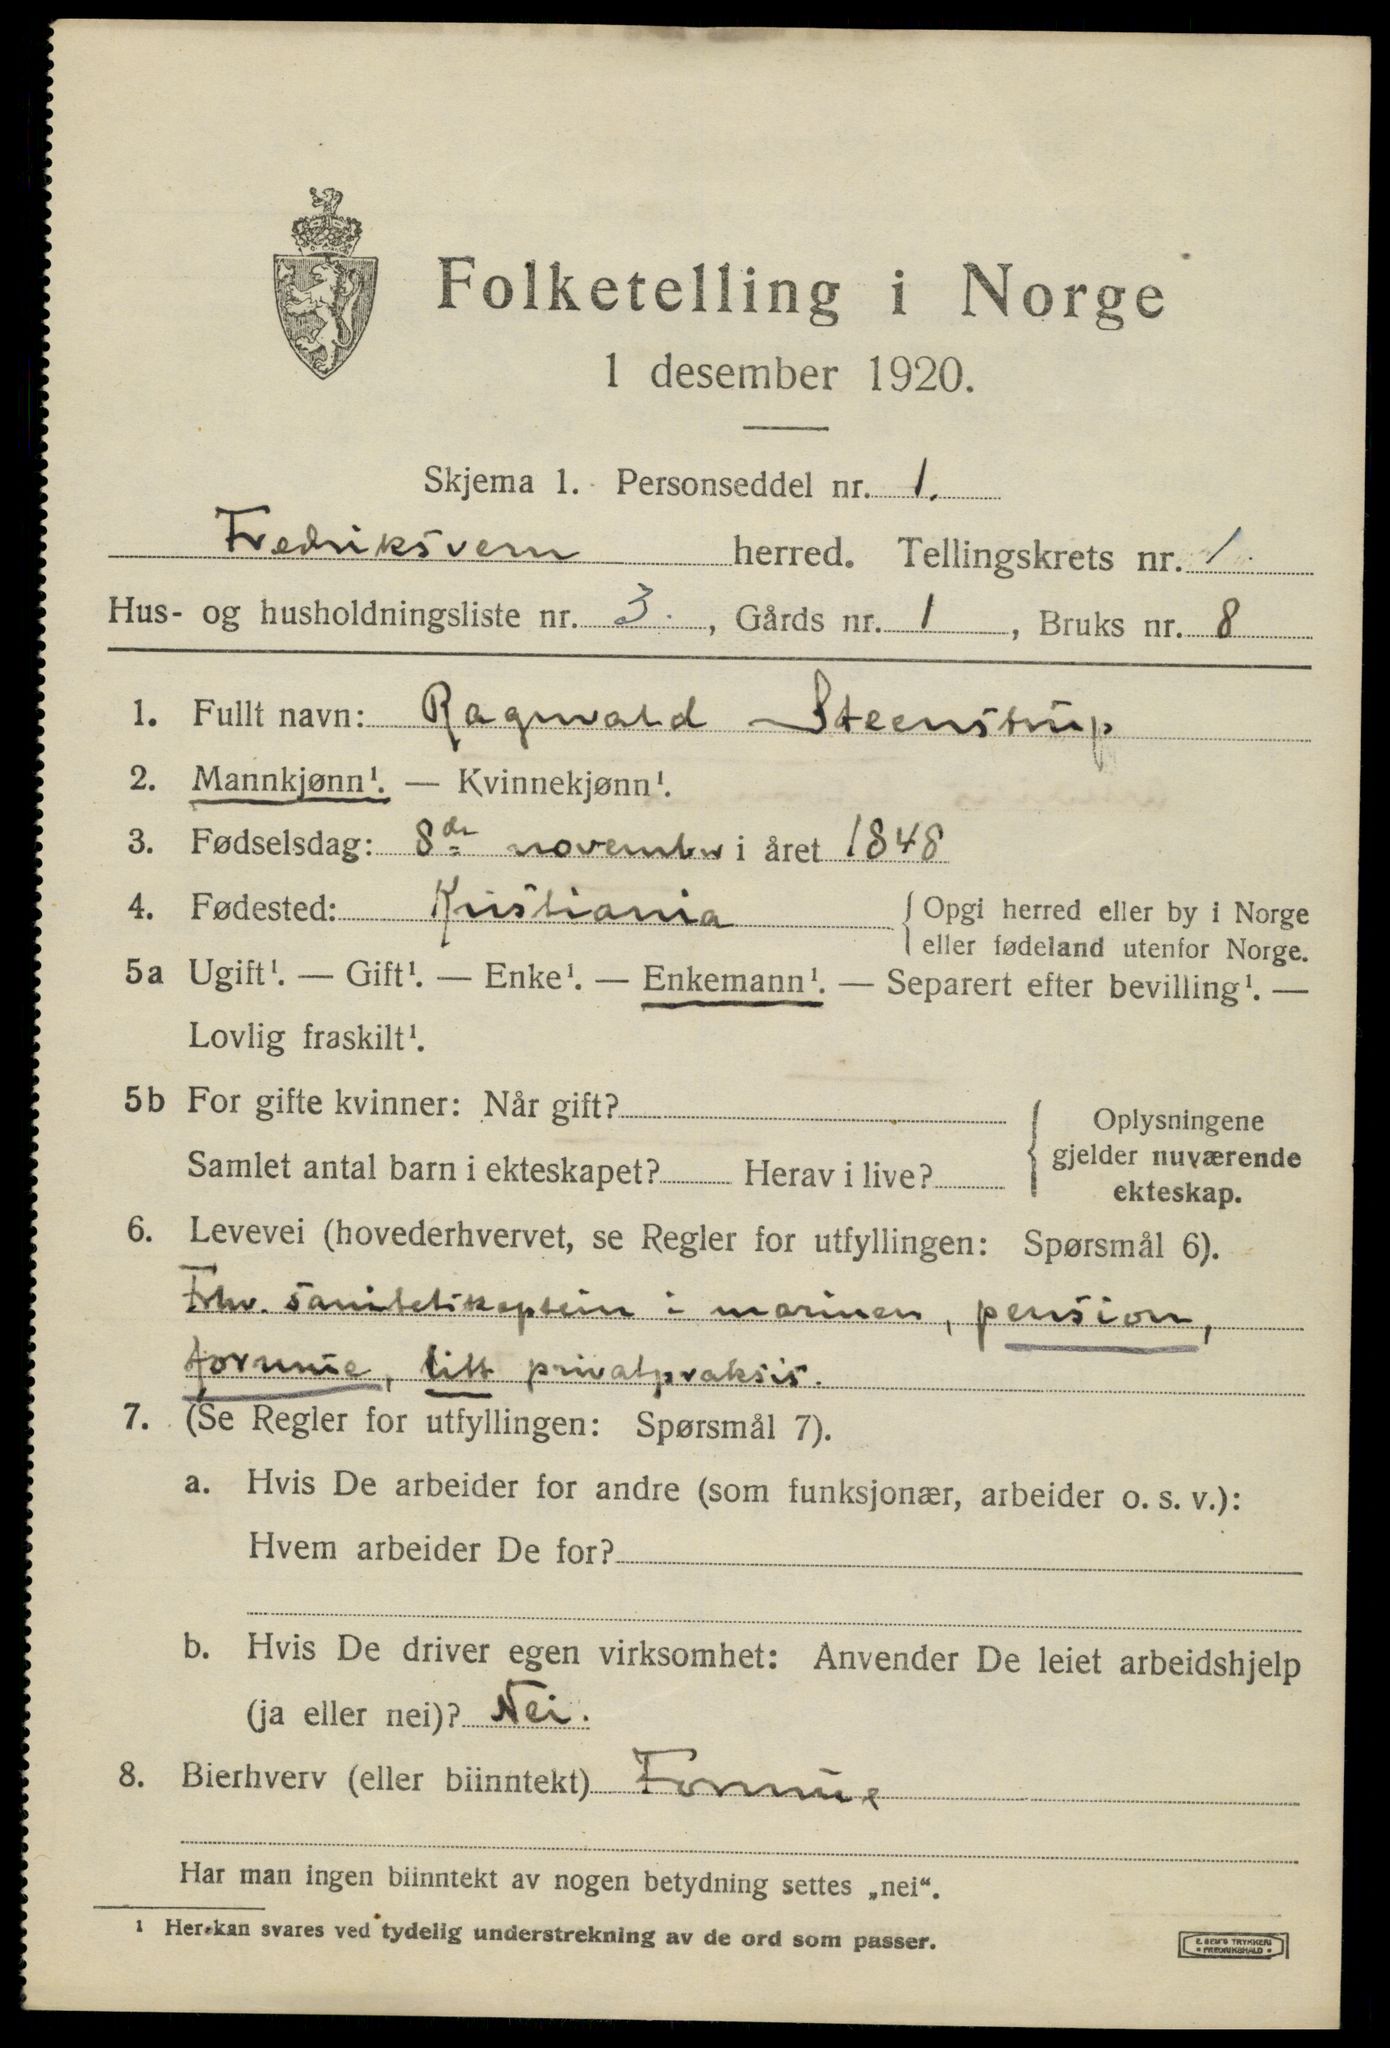 Folketelling i Norge
1 desember 1920.
Skjema 1. Personseddel nr. 1.
Fredriksvern herred. Tellingskrets nr. 1.
Hus- og husholdningsliste nr. 3., Gårds nr. 1, Bruks nr. 8
1. Fullt navn: Ragnvald Steenstrup
2. Mannkjønn¹. — Kvinnekjønn¹.
3. Fødselsdag: 8de november i året 1848
4. Fødested: Kristiania { Opgi herred eller by i Norge
eller fødeland utenfor Norge.
5a Ugift¹. — Gift¹. — Enke¹. — Enkemann¹. — Separert efter bevilling¹. —
Lovlig fraskilt¹.
5b For gifte kvinner: Når gift?
Samlet antal barn i ekteskapet? Herav i live?
{ Oplysningene
gjelder nuværende
ekteskap.
6. Levevei (hovederhvervet, se Regler for utfyllingen: Spørsmål 6).
Fhv. sanitetskaptein i marinen, pension,
formue, litt privatpraksis.
7. (Se Regler for utfyllingen: Spørsmål 7).
a. Hvis De arbeider for andre (som funksjonær, arbeider o. s. v.):
Hvem arbeider De for?
b. Hvis De driver egen virksomhet: Anvender De leiet arbeidshjelp
(ja eller nei)? Nei.
8. Bierhverv (eller biinntekt) Formue
Har man ingen biinntekt av nogen betydning settes „nei“.
¹ Her kan svares ved tydelig understrekning av de ord som passer.
E. SEM'S TRYKKERI
• FREDRIKSHALD •